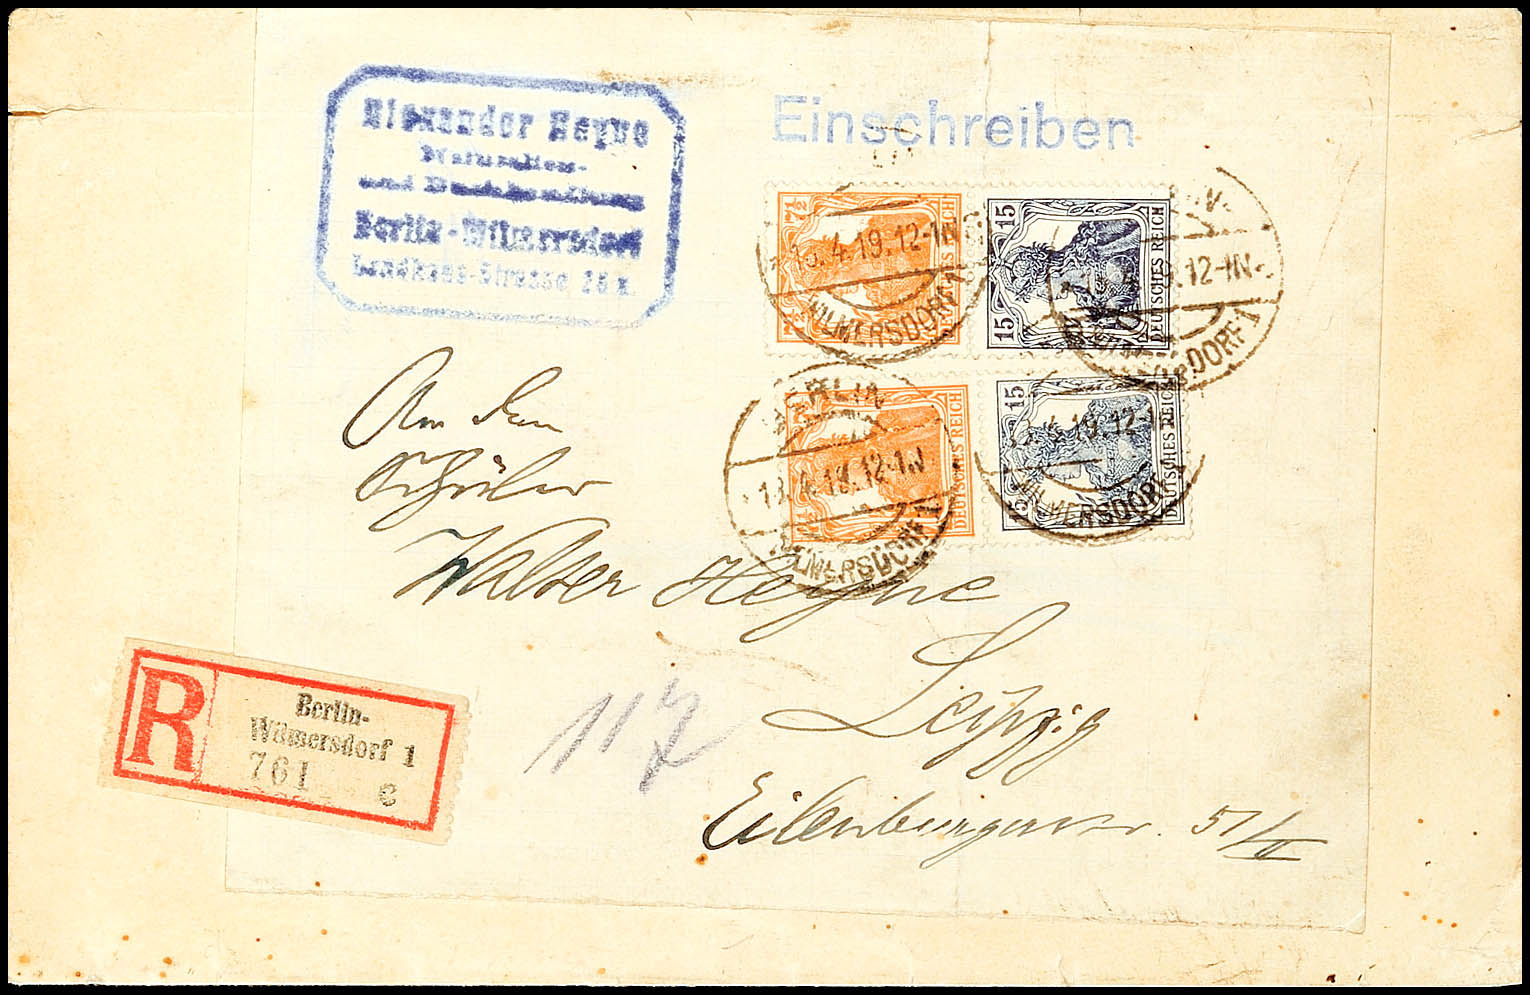 Alexander Heyne
Berlin-Wilmersdorf
Landhaus-Strasse
Einschreiben
7½ DEUTSCHES REICH 7½
15 DEUTSCHES REICH 15
4.19.12-1N
WILMERSDORF 1
4.19.12-1N
DORF 1
7½ DEUTSCHES REICH 7½
15 DEUTSCHES REICH 15
BERLIN
13.4.19.12-1N
WILMERSDORF 1
4.19.12-1
WILMERSDORF
An den
Schüler
Walter Heyne
Leipzig
Eilenburgerstr. 51/II
R
Berlin-
Wilmersdorf 1
761
c